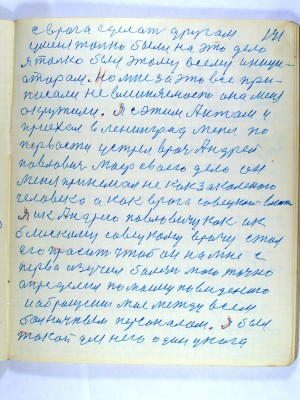 с врага сделат другам 141
умен толко были на это дело
я толко был этому всему иници-
аторам. Но мне за это все при-
писали невминяемость она меня
окружили. Я с этим Актам и
приехал в ленинград меня по
первости устрел врач Андрей
павлович маер своего дело он
меня принимал не как закаленого
человека а как врага совецкои власти
Я их Андрею павловичу как к
блискому совецкому врачу стал
его прасит чтоб он на мне с
перва изучил балезн мою точно
определил по моему поведению
и абращении мое между всем
болничным персоналам. Я был
такой для него один у кога